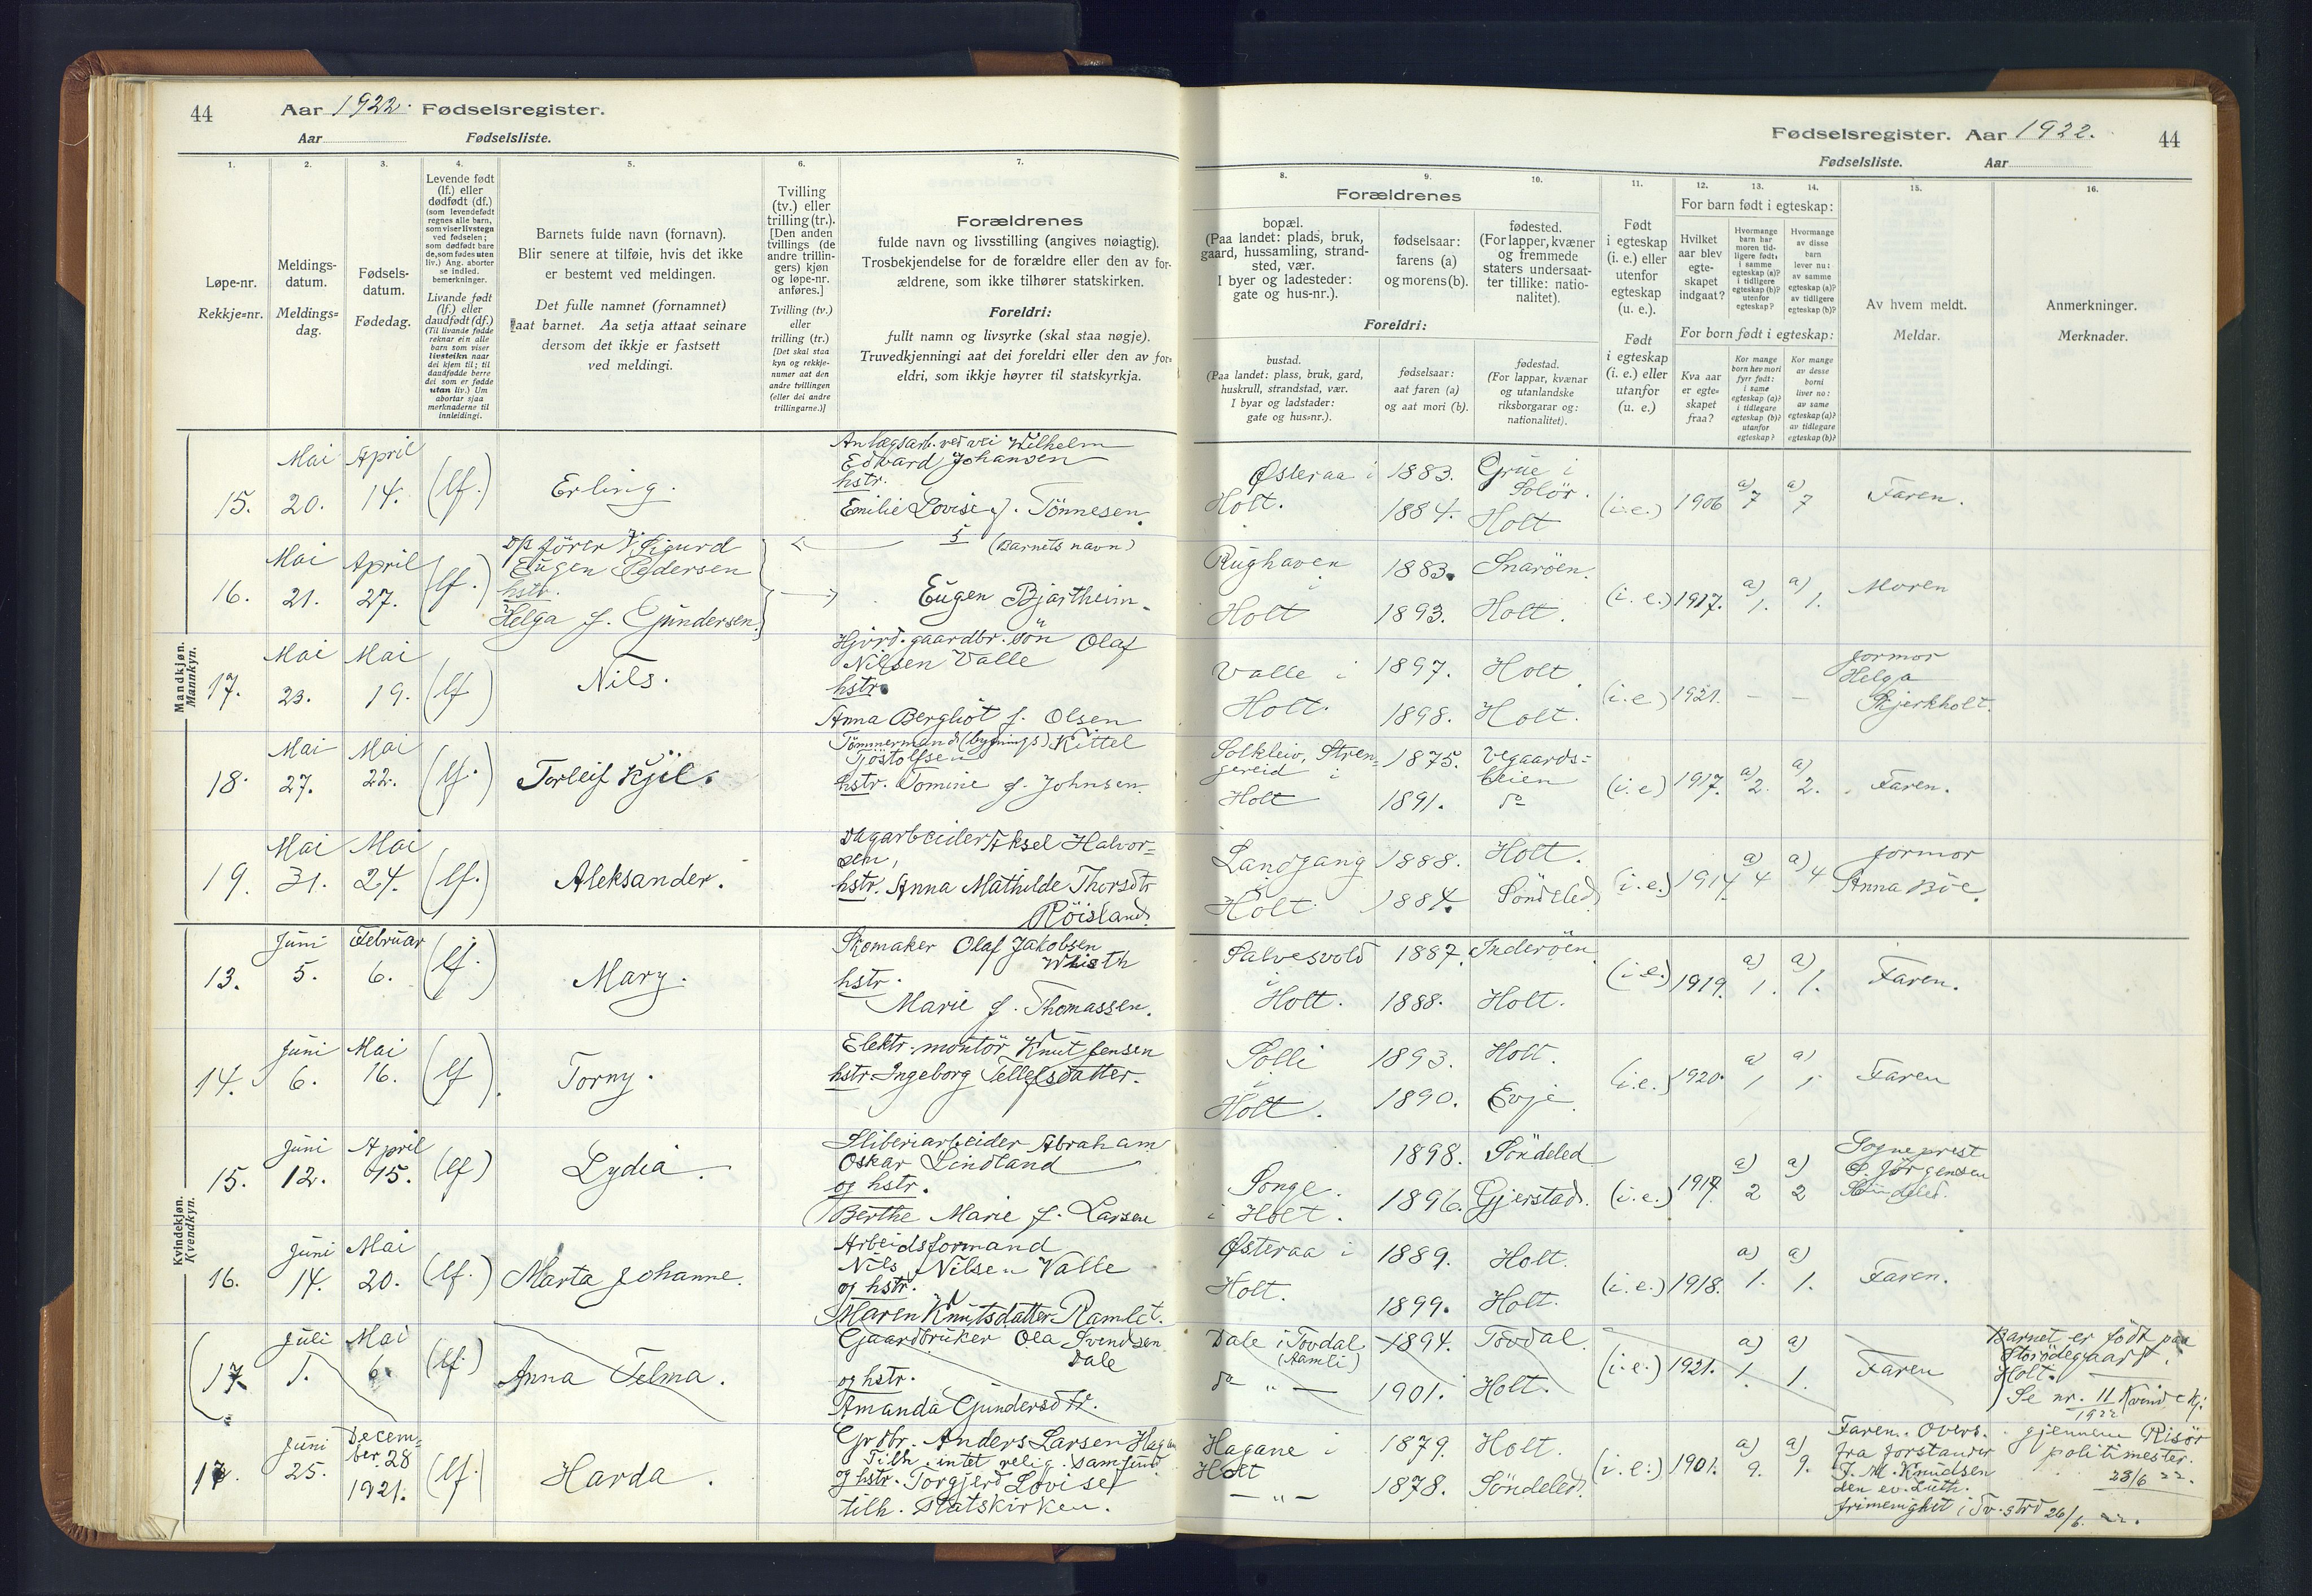 44
Aar 1922. Fødselsregister.
Aar
Fødselsliste.
1.
2.
3.
4.
5.
6.
7.
Løpe-nr.
Rekkje=nr.
Meldings-
datum.
Meldings=
dag.
Fødsels-
datum.
Fødedag.
Levende født
(lf.) eller
dødfødt (df.)
(som levendefødt
regnes alle barn,
som viser livstegn
ved fødselen;
som dødfødt bare
de, som fødes uten
liv.) Ang. aborter
se indled.
bemerkninger.
Livande født
(lf.) eller
daudfødt (df.)
(Til livande fødde
reknar ein alle
barn som viser
livsteikn naar
dei kjem til; til
daudfødde berre
dei som er fødde
utan liv.) Um
abortar sjaa
merknaderne til
innleidingi.
Barnets fulde navn (fornavn).
Blir senere at tilføie, hvis det ikke
er bestemt ved meldingen.
Det fulle namnet (fornamnet)
aat barnet. Aa setja attaat seinare
dersom det ikkje er fastsett
ved meldingi.
Tvilling
(tv.) eller
trilling (tr.).
[Den anden
tvillings (de
andre trillin-
gers) kjøn
og løpe-nr.
anføres.]
Tvilling (tv.)
eller
trilling (tr.)
[Det skal staa
kyn og rekkje-
numer aat den
andre tvillingen
(eller dei andre
trillingarne.)]
Forældrenes
fulde navn og livsstilling (angives nøiagtig).
Trosbekjendelse for de forældre eller den av for-
ældrene, som ikke tilhører statskirken.
Foreldri:
fullt namn og livsyrke (skal staa nøgje).
Truvedkjenningi aat dei foreldri eller den av for=
eldri, som ikkje høyrer til statskyrkja.
Mandkjøn.
Mannkyn.
15.
Mai
20.
April
14.
(lf.)
Erling.
Anlægsarb. ved vei Wilhelm
Edvard Johansen
hstr.
Emilie Lovise f. Tönnesen.
16.
Mai
21.
April
27.
(lf.)
D/s förer Sigurd
Eugen Pedersen
hstr.
Helga f. Gundersen.
(Barnets navn)
Eugen Bjartheim.
17.
Mai
23.
Mai
19.
(lf)
Nils.
gaardbr. sön Olaf
Nilsen Valle
hstr.
Anna Bergliot f. Olsen
18.
Mai
27.
Mai
22.
(lf.)
Torleif Kjel.
Tömmermand (bygnings) Kittel
Tjöstolfsen
hstr. Domine f. Johnsen.
19.
Mai
31.
Mai
24.
(lf.)
Aleksander.
Dagarbeider Aksel Halvor=
sen,
hstr. Anna Mathilde Thorsdtr
Röisland.
Kvindekjøn.
Kvendkyn.
13.
Juni
5.
Februar
6.
(lf.)
Mary.
Skomaker Olaf Jakobsen
Wisth
hstr.
Marie f. Thomassen.
14.
Juni
6.
Mai
16.
(lf).
Torny.
Elektr. montör Knut Jensen
hstr. Ingeborg Tellefsdatter.
15.
Juni
12.
April
15.
(lf)
Lydia.
Sliberiarbeider Abraham
Oskar Lindland
og hstr.
Berthe Marie f. Larsen
16.
Juni
14.
Mai
20.
(lf.)
Marta Johanne.
Arbeidsformand
Nils Nilsen Valle
og hstr.
Maren Knutsdatter Ramlet.
(17
Juli
1.
Mai
6.
(lf.)
Anna Telma.
Gaardbruker Ola Svendsen
Dale
og hstr.
Amanda Gundersdtr.
17.
Juni
25.
Decem=
ber 28
1921.
(lf.)
Harda.
Grdbr. Anders Larsen Hagan
Tilh. intet relig. samfund.
og hstr. Torgjerd Lovise
tilh. statskirken.
Fødselsregister. Aar 1922.
44
Fødselsliste.
Aar
8.
9.
10.
11.
12.
13.
14.
15.
16.
Forældrenes
bopæl.
(Paa landet: plads, bruk,
gaard, hussamling, strand-
sted, vær.
I byer og ladesteder:
gate og hus-nr.).
fødselsaar:
farens (a)
og morens (b).
fødested.
(For lapper, kvæner
og fremmede
staters undersaat-
ter tillike: natio-
nalitet).
Foreldri:
bustad.
(Paa landet: plass, bruk, gard,
huskrull, strandstad, vær.
I byar og ladstader:
gate og hus=nr.).
fødselsaar:
aat faren (a)
og aat mori (b).
fødestad.
(For lappar, kvænar
og utanlandske
riksborgarar og:
nationalitet).
Født
i egteskap
(i. e.) eller
utenfor
egteskap
(u. e.).
Født
i egteskap
(i. e.) eller
utanfor
(u. e.)
For barn født i egteskap:
Hvilket
aar blev
egte-
skapet
indgaat?
Hvormange
barn har
moren tid-
ligere født:
i samme
egteskap (a)?
i tidligere
egteskap (b)?
utenfor
egteskap?
Hvormange
av disse
barn
lever nu:
av samme
egteskap (a)?
av tidligere
egteskap (b)?
For born født i egteskap:
Kva aar
er egte=
skapet
fraa?
Kor mange
born hev mori
fyrr født:
i same
egteskap (a)?
i tidlegare
egteskap (b)?
utanfor
egteskap?
Kor mange
av desse
borni
liver no:
av same
egteskap (a)?
av tidlegare
egteskap (b)?
Av hvem meldt.
Meldar.
Anmerkninger.
Merknader.
Østeraa i
Holt.
1883.
1884.
Grue i
Solör.
Holt
(i.e.)
1906
a) 7
a) 7
Faren.
Rughaven
i
Holt
1883.
1893.
Snaröen.
Holt.
(i.e.)
1917.
a) 1.
a) 1.
Moren
Valle i
Holt.
1897.
1898.
Holt
Holt.
(i.e)
1921.
–
–
Jormor
Helga
Skjerkholt.
Solkleiv, Stren=
gereid i
Holt
1875.
1891.
Vegaards=
heien
do
(i.e)
1917.
a) 2.
a) 2.
Faren.
Landgang
i
Holt
1888.
1884.
Holt.
Söndeled
(i.e.)
1914.
a) 4
a) 4
Jormor
Anna Böe.
Salvesvold
i
Holt.
1887.
1888.
Inderöen
Holt.
(i.e.)
1919.
a) 1.
a) 1.
Faren.
Solli
i
Holt.
1893.
1890.
Holt.
Evje.
(i.e.)
1920.
a) 1
a) 1
Faren
Songe.
i Holt.
1898.
1896.
Söndeled
Gjerstad.
(i.e.)
1917.
a) 2
a) 2
Sogneprest
S. Jörgensen
Söndeled.
Østeraa i
Holt.
1889.
1899.
Holt.
Holt.
(i.e.)
1918.
a) 1.
a) 1.
Faren.
Dale i Tovdal
(Aamli)
do " —
1894.
1901.
Tovdal.
Holt.
(i.e.)
1921.
a) 1.
a) 1.
Faren
Barnet er födt paa
Storödegaard,
Holt.
Se nr. 11 Kvindekj.
1922
Hagane i
Holt
— " —
1879.
1878.
Holt.
Söndeled.
(i.e.)
1901.
a) 9.
a) 9.
Faren. Overs. gjennem Risör
politimester.
23/6 22.
fra forstander
J. M. Knudsen
den ev. Luth.
frimenighet i Tv.strd 26/6 22.